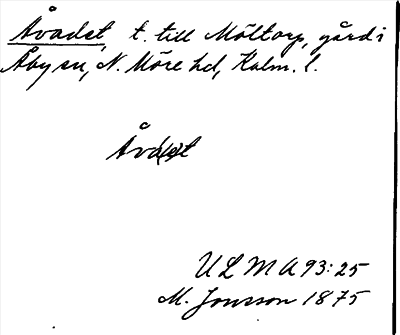 Åvadet, t. till Möltorp, gård i
Åby sn, N. Möre hd, Kalm. l.
Åvá(e)t
ULMA 93:25
M. Jonsson 1875